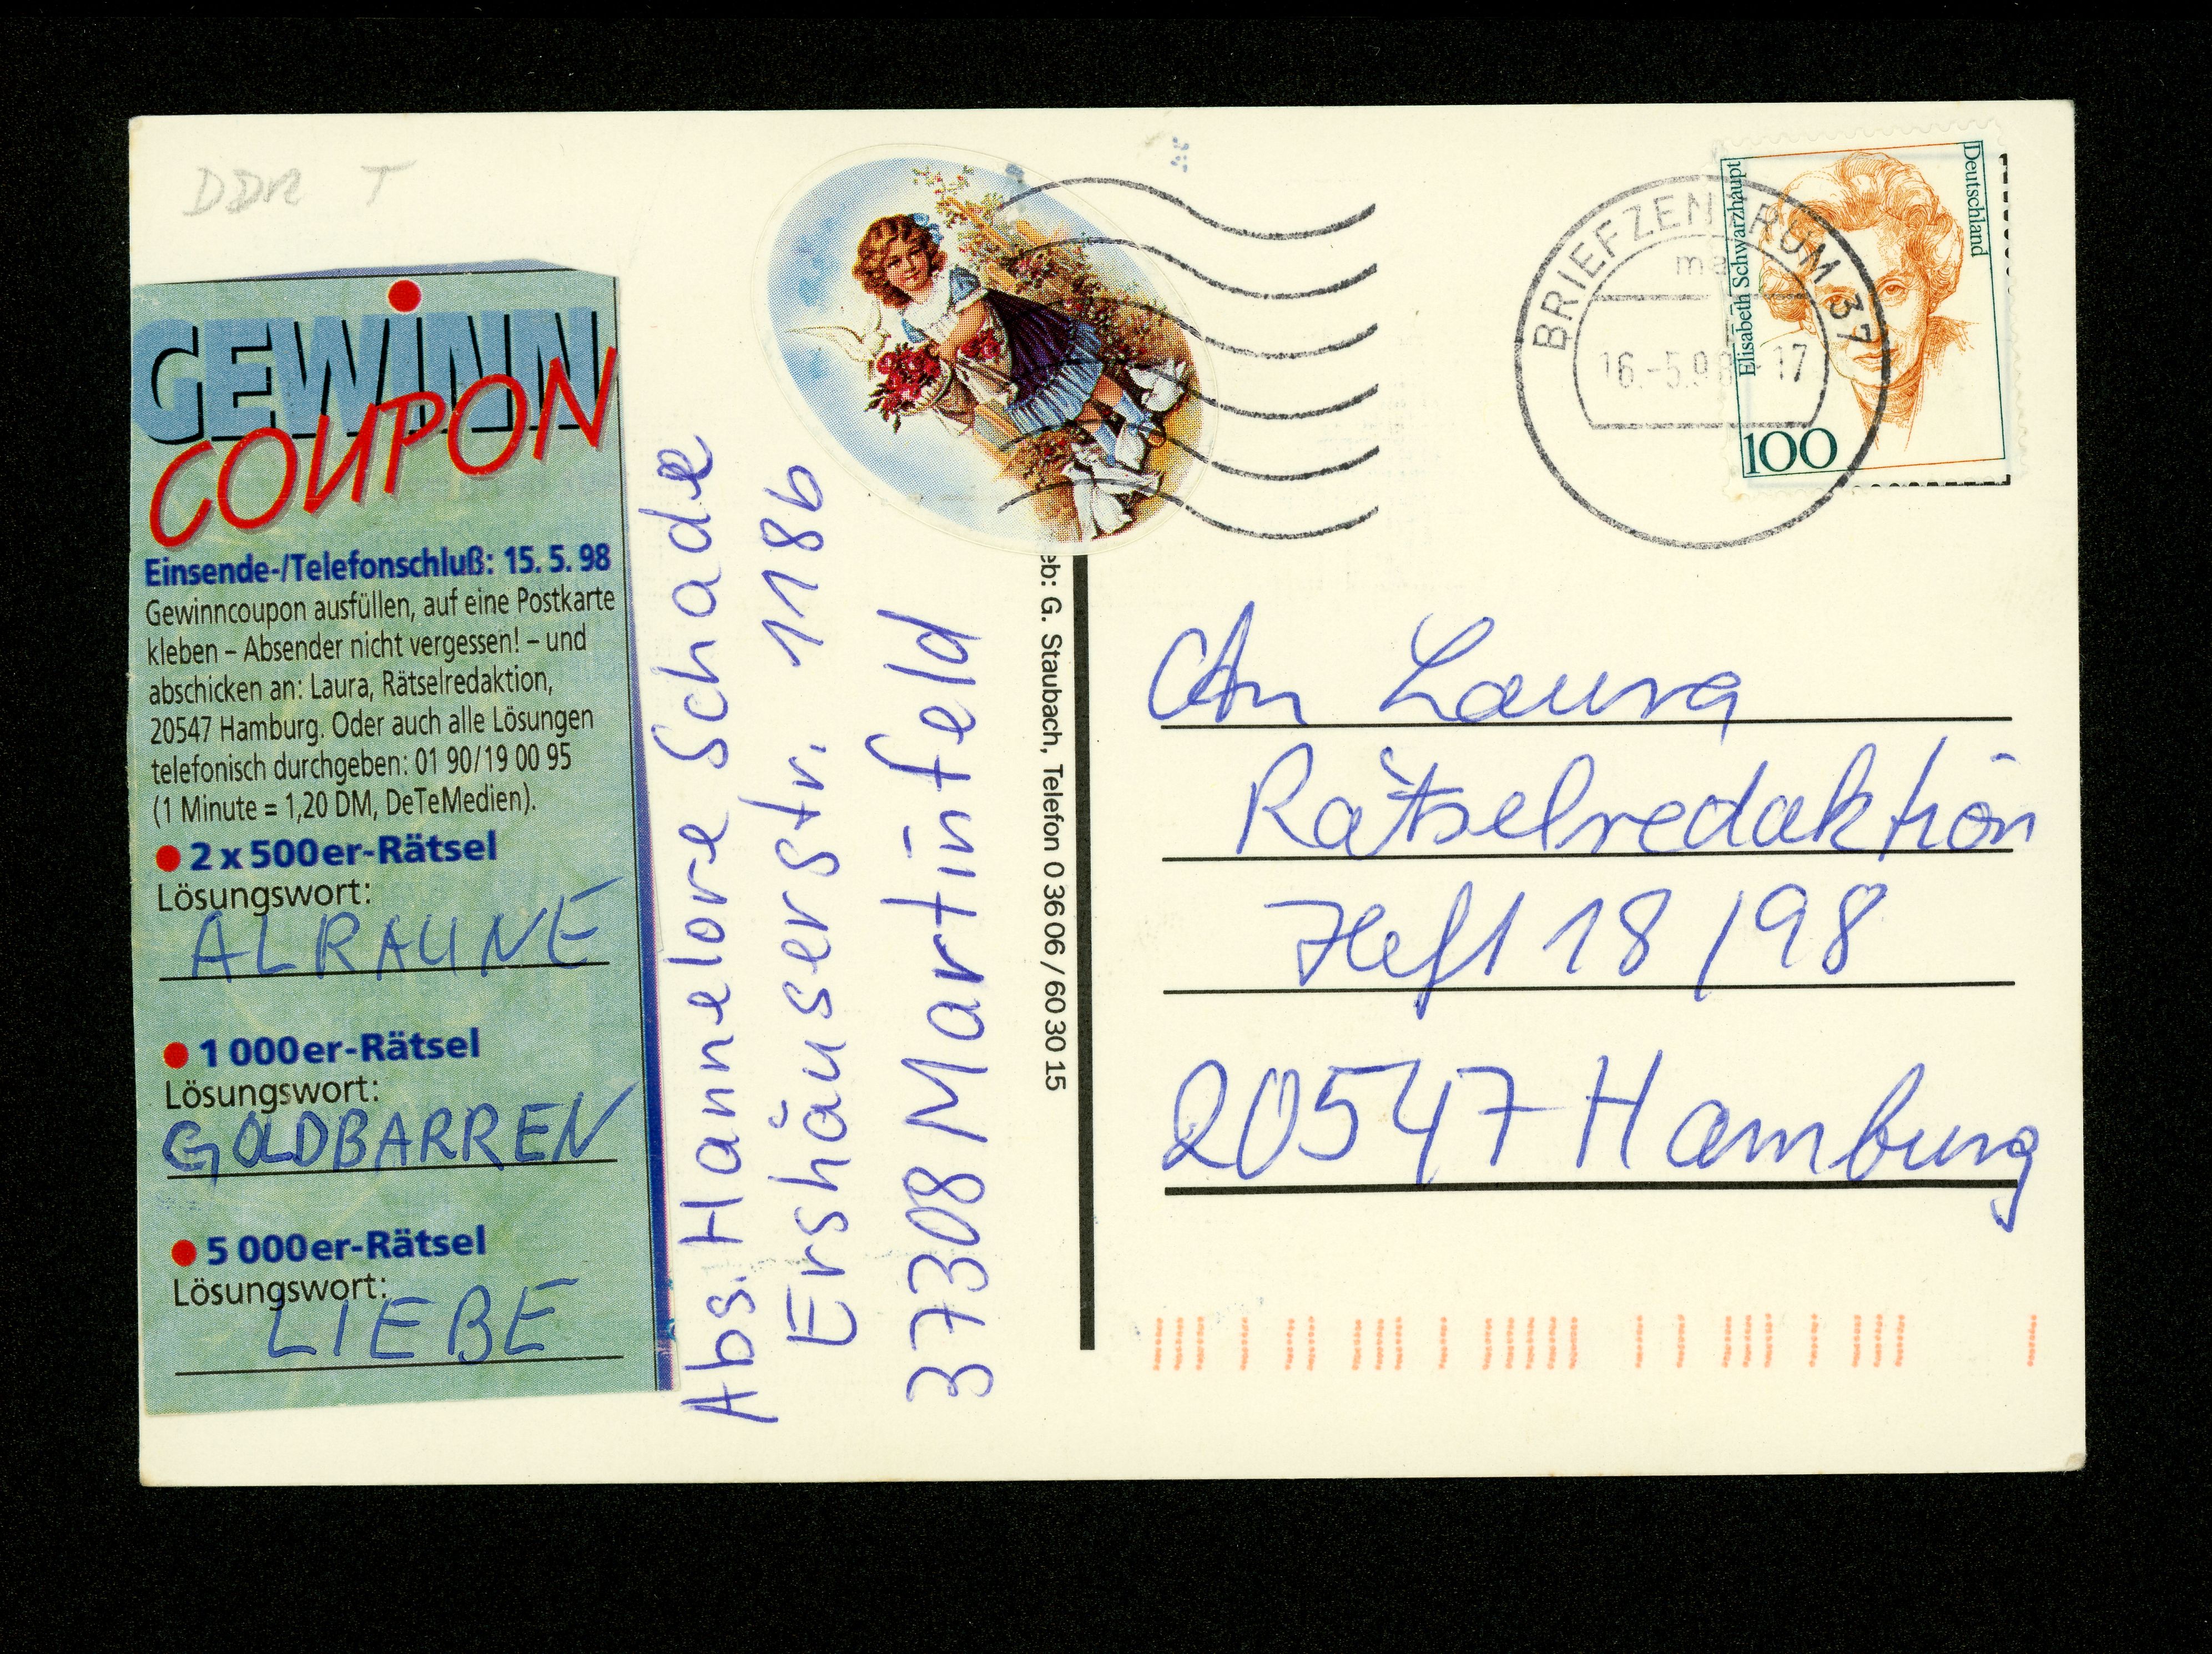 DDR T
GEWINN
COUPON
Einsende-/Telefonschluß: 15. 5. 98
Gewinncoupon ausfüllen, auf eine Postkarte
kleben – Absender nicht vergessen! – und
abschicken an: Laura, Rätselredaktion,
20547 Hamburg. Oder auch alle Lösungen
telefonisch durchgeben: 01 90/19 00 95
(1 Minute = 1,20 DM, DeTeMedien).
2 x 500er-Rätsel
Lösungswort:
ALRAUNE
1 000er-Rätsel
Lösungswort:
GOLDBARREN
5 000er-Rätsel
Lösungswort:
LIEBE
Abs. Hannelore Schade
Ershäuserstr. 118b
37308 Martinfeld
eb: G. Staubach, Telefon 0 36 06 / 60 30 15
BRIEFZENTRUM 37
16.-5.98 17
Deutschland
Elisabeth Schwarzhaupt
100
An Laura
Rätselredaktion
Heft 18/98
20547 Hamburg